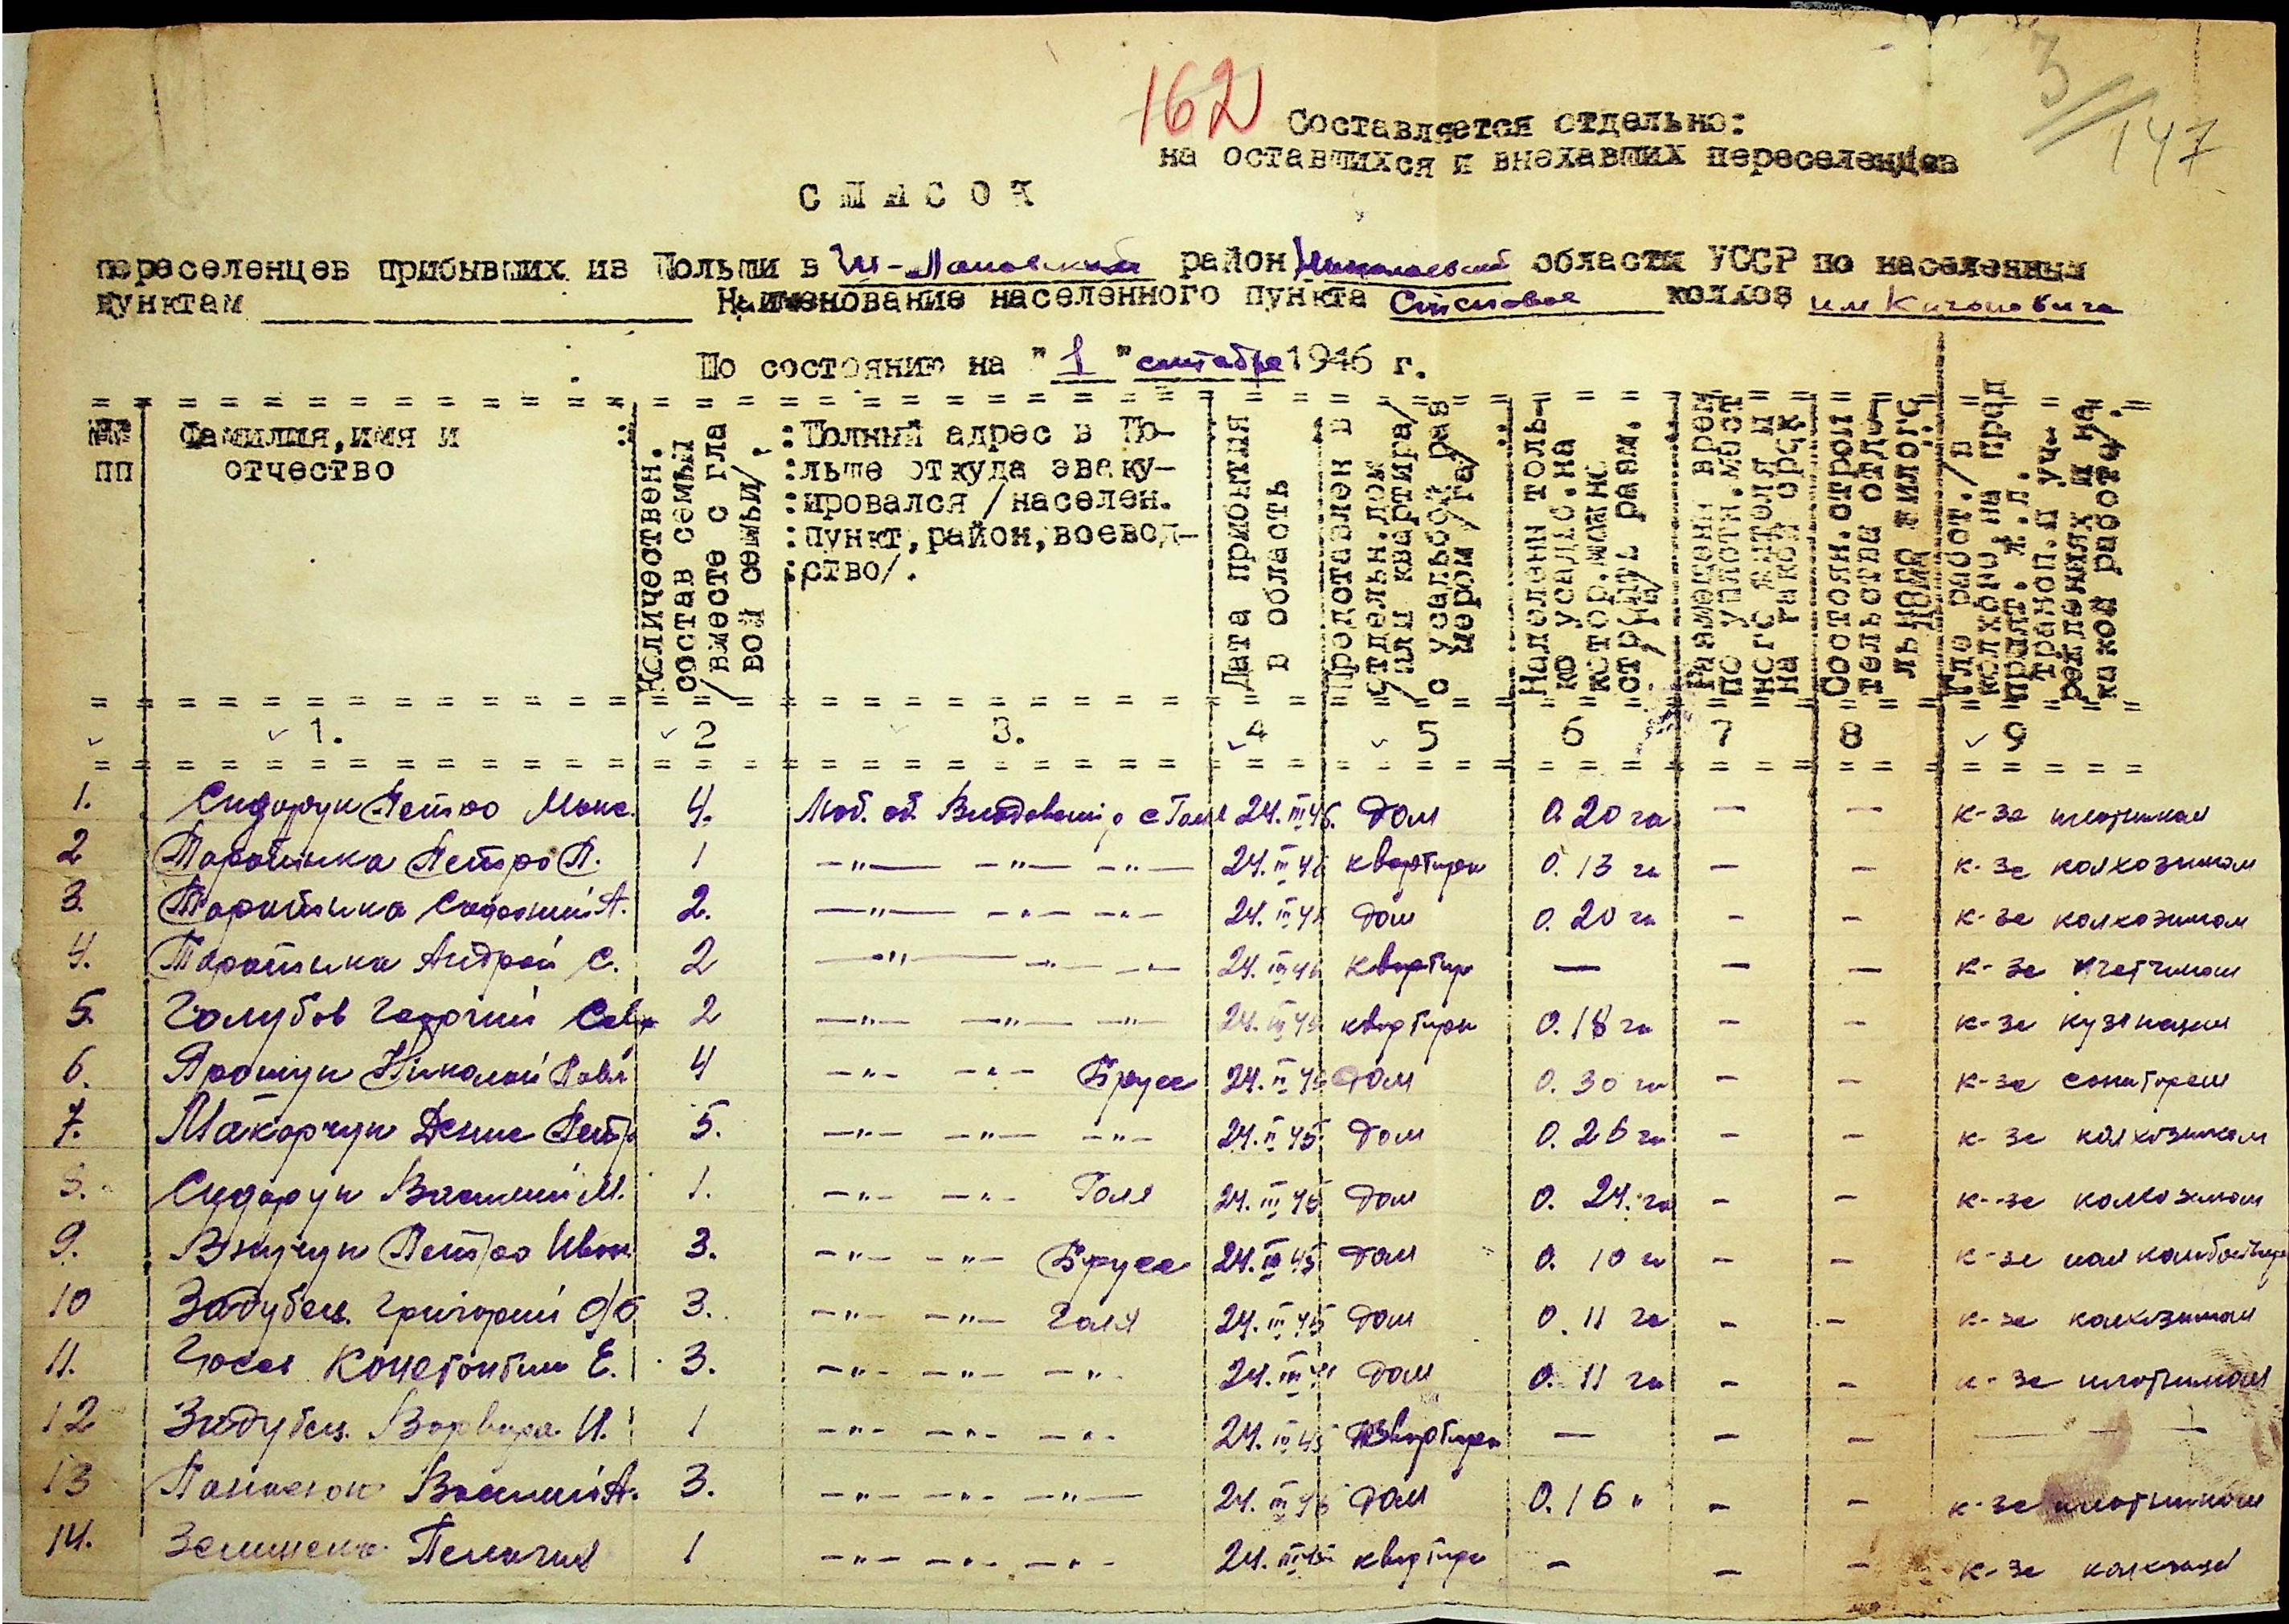 162
3/147
Составляется отдельно:
на оставшихся и внехавших переселенцев
СПИСОК
переселенцев прибывших из Польши в Ш-Лановский район Николаевской области УССР по населенным
пунктам Наименование населенного пункта Степовое колхоз им Кагановича
По состоянию на "1" сентября 1946 г.
№№ пп
Фамилия, имя и отчество
Количествен. состав семьи /вместе с главой семьи/.
:Полный адрес в По-
:льше откуда эваку-
:ировался /населен.
:пункт, район, воевод-
:ство/.
Дата прибытия в область
Предоставлен в отдельн. дом /или квартира/ с усадьбой размером /га/
Наделены только усадьб. на котор. можно строить разм. /га/
Размещены врем. по уплотн. мест ного жителя и на какой срок
Состоян. строительства отдельного жилого дома
Где работ. /в колхозе, на пред прият. ж.д. трансп. и учреждениях и на какой работе/.
1. 2 3. 4 5 6 7 8 9
1. Сидорук Петро Макс. 4. Люб. об. Влодовский р с Голя 24.III 45. Дом 0.20 га — — к-зе плотником
2 Тарасюка Петро П. 1 —"— —"— —"— 24.III 45 квартира 0.13 га — — к-зе колхозником
3. 2. —"— —"— —"— 24.III 45 Дом 0.20 га — — к-зе колхозником
4. Андрей С. 2 —"— —"— —"— 24.III 45 квартир — — — к-зе
5. Голубов Георгий Сав 2 —"— —"— —"— 24.III 45 квартира 0.18 га — — к-зе кузнецом
6. Николай Павл 4 —"— —"— Брусе 24.II 45 Дом 0.30 га — — к-зе
7. Макарчук Денис Петр 5. —"— —"— —"— 24.II 45 Дом 0.26 га — — к-зе колхозником
8. Сидорук Василий М. 1. —"— —"— Голя 24.III 45 Дом 0.24.га — — к-зе колхозником
9. Петро Иван. 3. —"— —"— Брусе 24.III 45 Дом 0.10 га — — к-зе
10 Задубец. Григорий 3. —"— —"— Голя 24.III 45 Дом 0.11 га — — к-зе колхозником
11. Константин Е. 3. —"— —"— —"— 24.III 45 Дом 0.11 га — — к-зе плотником
12 Задубец. Варвара И. 1 —"— —"— —"— 24.III 45 квартира — — — —
13 Панасюк Василий А. 3. —"— —"— —"— 24.III 45 Дом 0.16 " — — к-зе плотником
14. Пелагия 1 —"— —"— —"— 24.III 45 квартира — — — к-зе